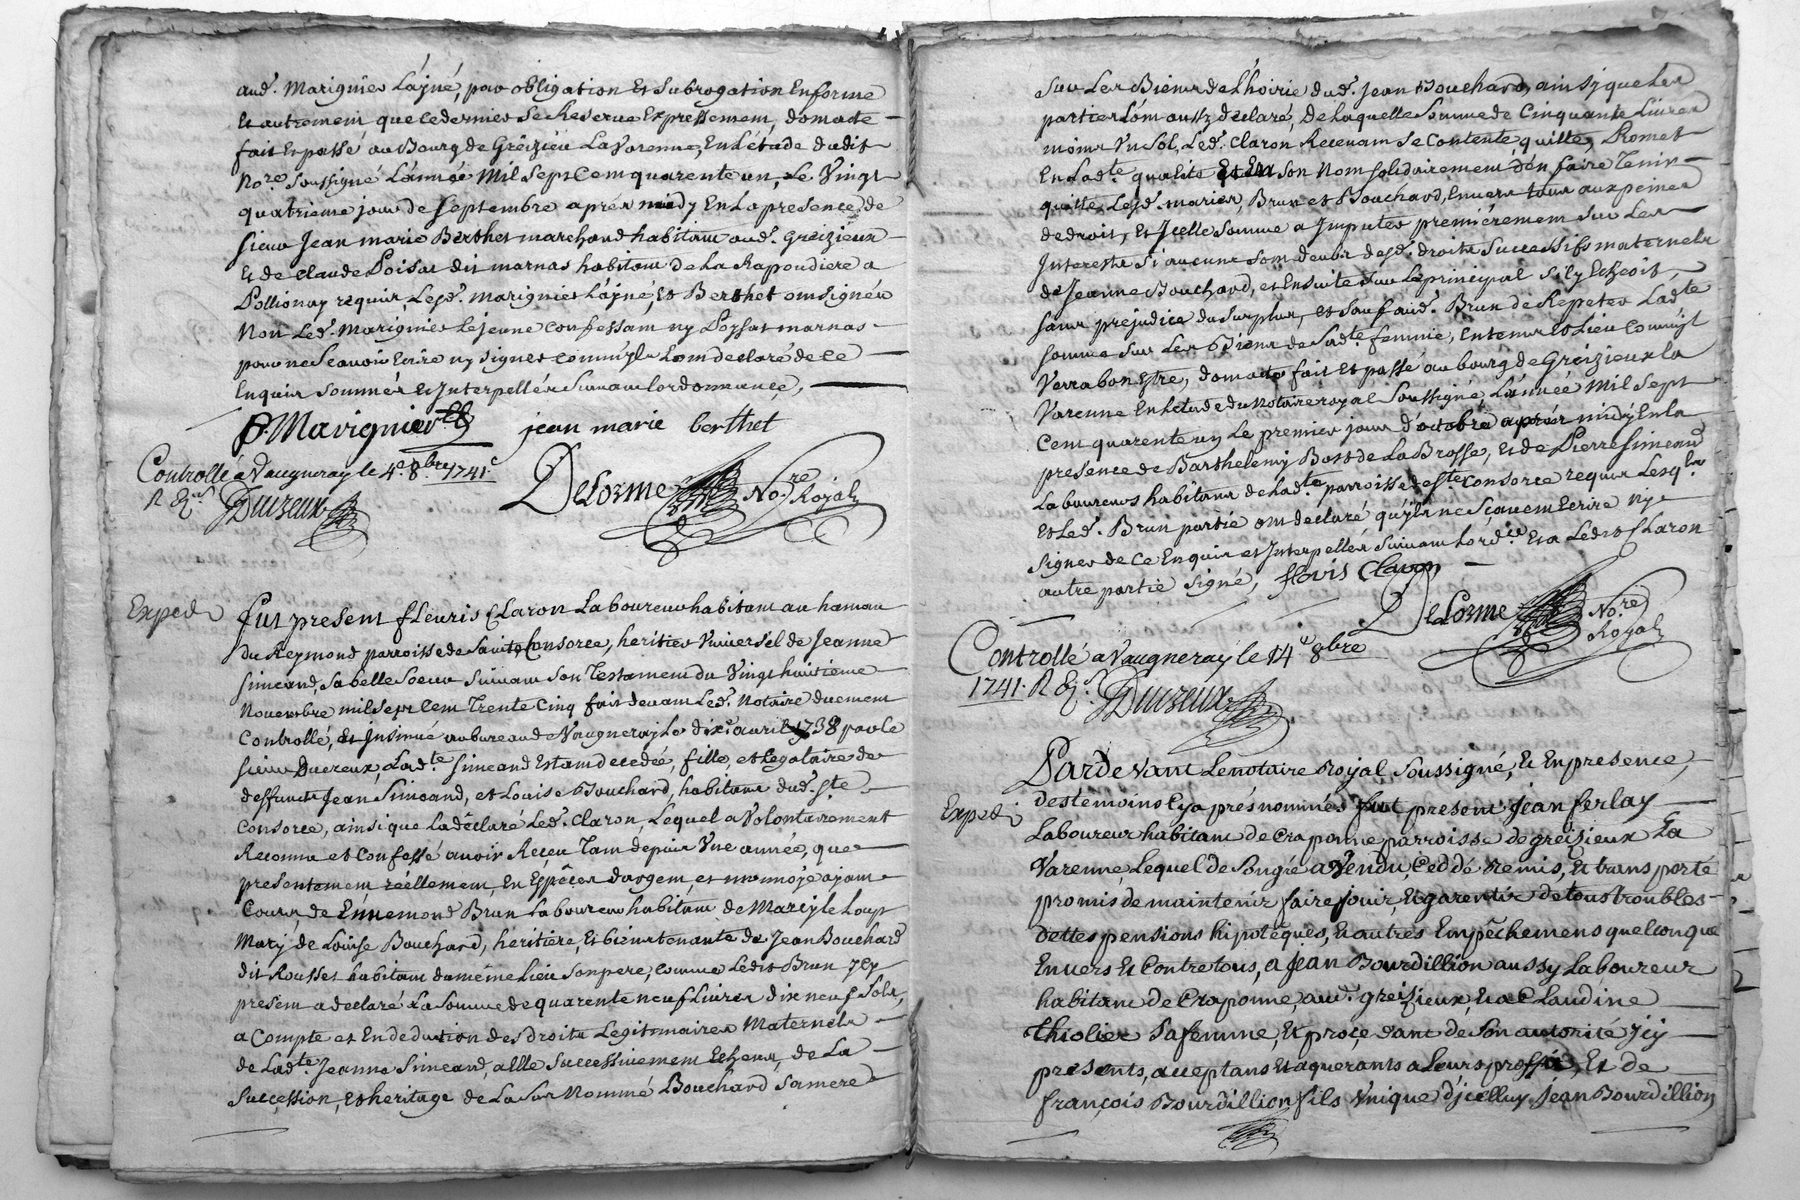 aud. Marignier L'ajné, par obligation Et Subrogation En forme
Et autrement que ce dernier se Reserve Expressement, dont acte
fait Et passé au Bourg de Greizieu La Varenne, En L'étude dudit
No.re Soussigné L'année Mil Sept Cent quarente un, Le Vingt
quatrieme jour de Septembre après midy En La presence de
Sieur Jean marie Berthet marchand habitant aud. Greizieux
Et de Claude Poisat dit marnas habitant de La Rapoudiere a
Pollionay requis Lesd. Marignier L'ajné, et Berthet ont signés
Non Led. Marignier Le jeune Confessant ny Poysat marnas
pour ne Scavoir Ecrire ny signer comm'jls L'ont declaré de ce
Enquis Sommés Et Interpellés Suivant lordonnance,
Marignier
jean marie berthet
Controllé a Vaugneray le 4.e 8.bre 1741.
Delorme No.re Royal
Duizeux
Exped
Fut present fleuris Claron Laboureur habitant au hameau
du Reymond parroisse de Sainte Consorce, heritier Universel de Jeanne
Simeand, Sa belle Soeur Suivant son Testament du Vingt huitieme
Novembre mil sept Cent Trente Cinq fait devant Led. Notaire duement
Controllé, Et Insinué au bureau de Vaugneray Le dix.e avril 1738 par le
Sieur Duereux, Lad.te Simeand Etant decedée, fille, et legataire de
deffunct Jean Simeand, et Louise Bouchard, habitans dud. Ste
Consorce, ainsi que La déclaré Led. Claron, Lequel a Volontairement
Reconnu et Confessé avoir Receu Tant depuis Une année, que
presentement réellement, En Espéces d'argent, et monnoye ayant
Cours, de Ennemond Brun Laboureur habitant de Marcy le Loup
Mary de Louise Bouchard, heritiere, Et bientenante de Jean Bouchard
dit Rousset habitant du méme Lieu Son pere, comme Ledit Brun Jcy
present a declaré La Somme de quarente neuf Livres dix neuf Sols,
a Compte et En deduction des droits Legitimaires Maternels
de Lad.te Jeanne Simeand, a Elle Successivement Echeus, de La
Succession, Et heritage de La Sus Nommé Bouchard Sa mere
Sur Les Biens de L'hoirie dud. Jean Bouchard, ainsy que Les
parties L'ont aussy déclaré, De Laquelle Somme de Cinquante Livres
moins Un Sol, Led. Claron Recevant Se Contente, quitte, Promet
En Lad.te qualité Et En son Nom solidairement d'En faire Tenir
quitte Lesd. mariés, Brun et Bouchard, Envers tous aux peines
de droit, Et Jcelle Somme a Imputer premiérement Sur Les
Interests si aucuns sont deubs desd. droits Successifs maternels
de Jeanne Bouchard, et Ensuite Sur Le principal S'il y Echeoit,
Sans prejudice du Surplus, et Sauf aud. Brun de Repeter Lad.te
Somme Sur Les Biens de Sad.te femme, En tems Et Lieu Comm'jl
Verra bon Estre, dont acte fait Et passé au bourg de Greizieux la
Varenne En L'etude du Notaire royal Soussigné, L'année Mil Sept
Cent quarente un Le premier jour d'octobre après midy En La
presence de Barthelemy Bost de La Brosse, Et de Pierre Simeand
Laboureurs habitans de Lad.te parroisse de Ste Consorce requis Lesq.ls
Et Led. Brun partie ont declaré qu'jls ne Sçavent Ecrire ny
Signer de ce Enquis et Interpellés Suivant Lord.ce Et a Ledit Claron
autre partie signé,
floris Claron
Delorme No.re Royal
Controllé a Vaugneray le 14.e 8bre
1741.
Duizeux
Exped
Pardevant Le notaire Royal Soussigné, Et En presence,
des témoins Cy après nommés fut present Jean ferlay
Laboureur habitant de Craponne parroisse de greisieux La
Varenne Lequel de Son gré a Vendu, Ceddé Remis, Et transporté
promis de maintenir faire jouir, Et garentir de tous troubles
dettes pensions hipotéques, Et autres Empêchemens quelconque
Envers Et Contre tous, a Jean Bourdillion aussy Laboureur
habitant de Craponne, aud. greisieux, Et a Claudine
thiolier Sa femme, Et procedant de Son autorité Jcy
presents, acceptans Et aquerants a Leurs proffit, Et de
françois Bourdillion fils Unique d'jcelluy Jean Bourdillion